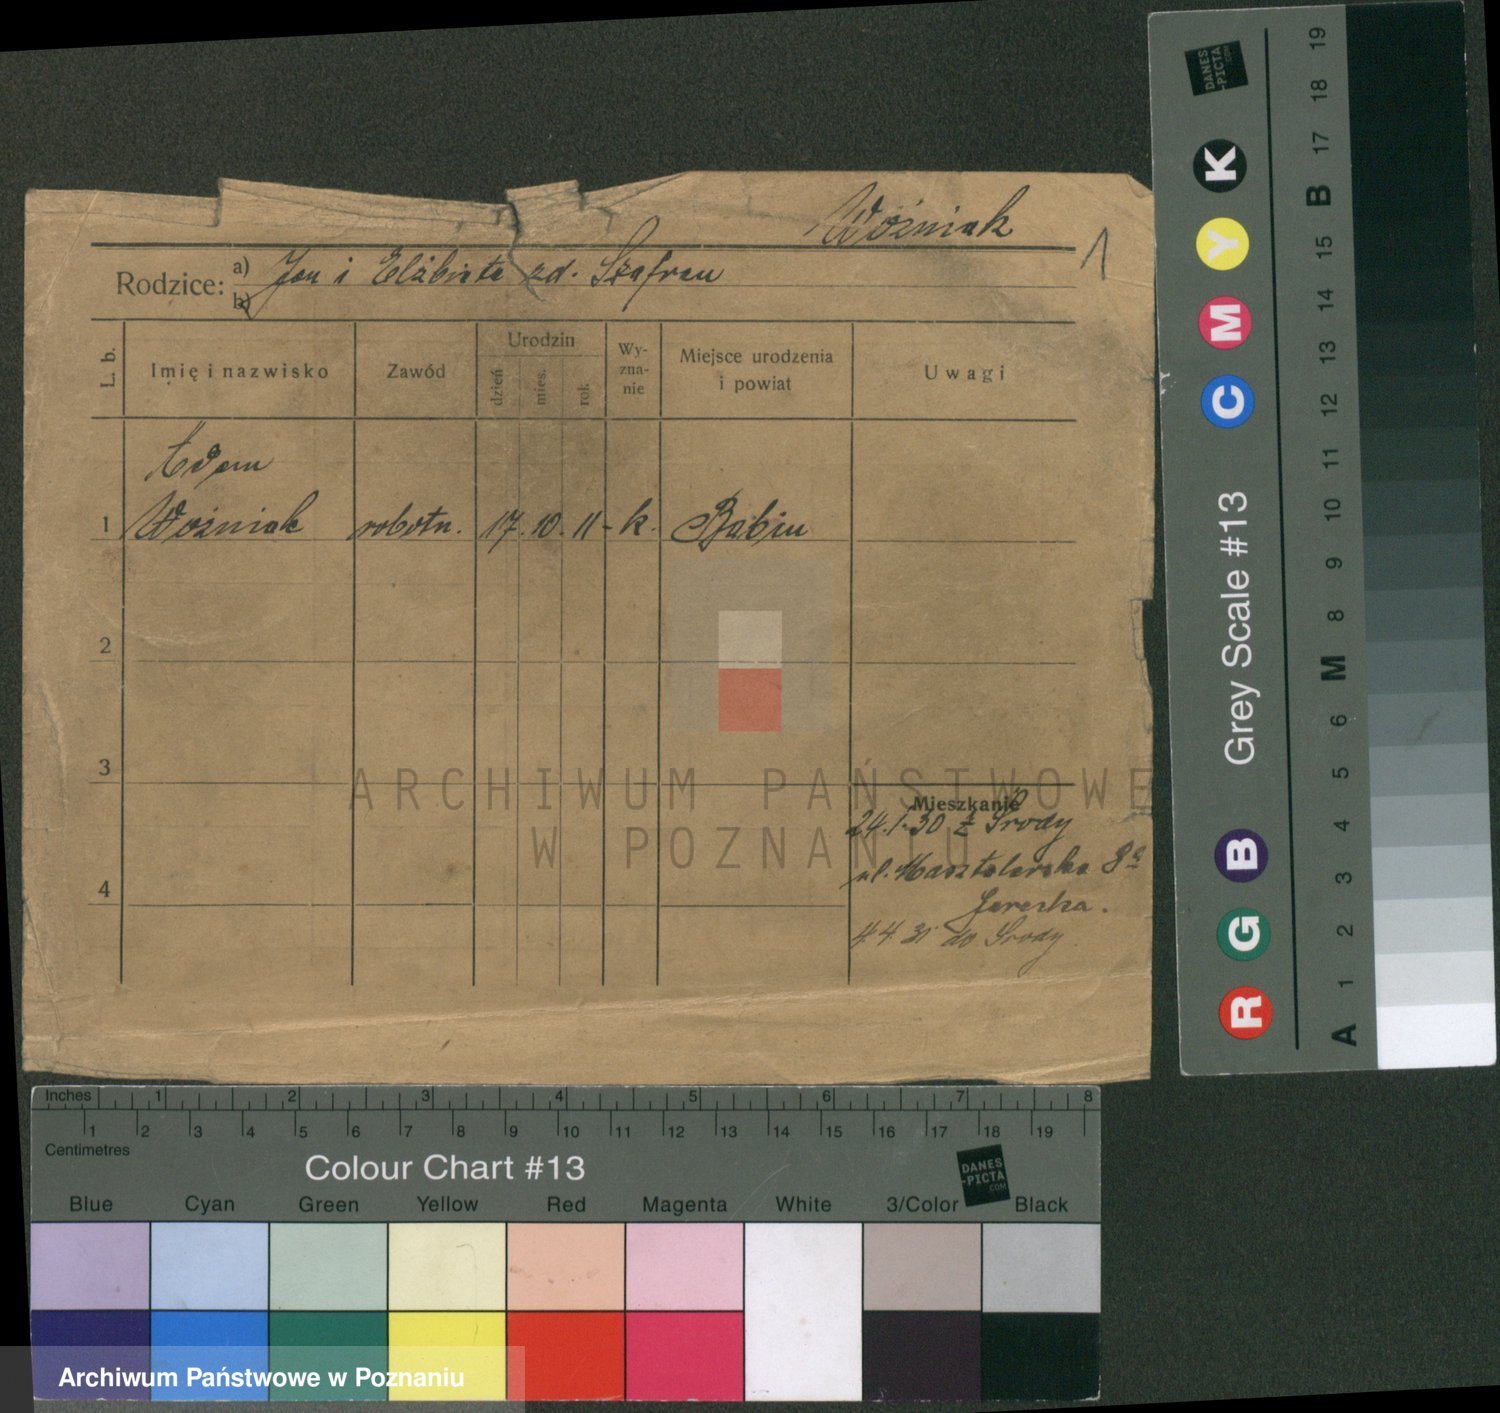 Woźniak
1
Rodzice: a) Jan i Elżbieta zd. Szafran
b)
L. b. Imię i nazwisko Zawód Urodzin dzień mies. rok. Wy-zna-nie Miejsce urodzenia i powiat Uwagi
Adam
1 Woźniak robotn. 17. 10. 11 - k. Babin
2
3
Mieszkanie
24.1.30 z Środy
4 ul. Masztalarska 8a
4.4.31 do Środy
ARCHIWUM PAŃSTWOWE
W POZNANIU
Inches 1 2 3 4 5 6 7 8
1 2 3 4 5 6 7 8 9 10 11 12 13 14 15 16 17 18 19
Centimetres
Colour Chart #13
DANES
-PICTA
.COM
Blue Cyan Green Yellow Red Magenta White 3/Color Black
Archiwum Państwowe w Poznaniu
R G B Grey Scale #13 C M Y K
DANES
-PICTA
.COM
A 1 2 3 4 5 6 M 8 9 10 11 12 13 14 15 B 17 18 19